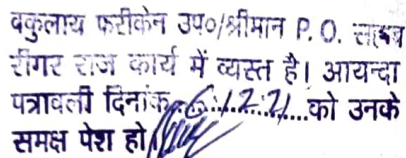 वकुलाय फरीकेन उप०/श्रीमान P. O. साहब
रीगर राज कार्य में व्यस्त है। आयन्दा
पत्रावली दिनांक 6.12.21 को उनके
समक्ष पेश हो